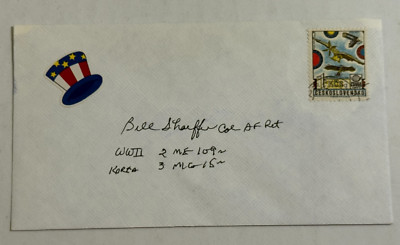 ČESKOSLOVENSKO
Bill Shaeffer Col AF Ret
WWII 2 ME 109~
KOREA 3 MIG 15~